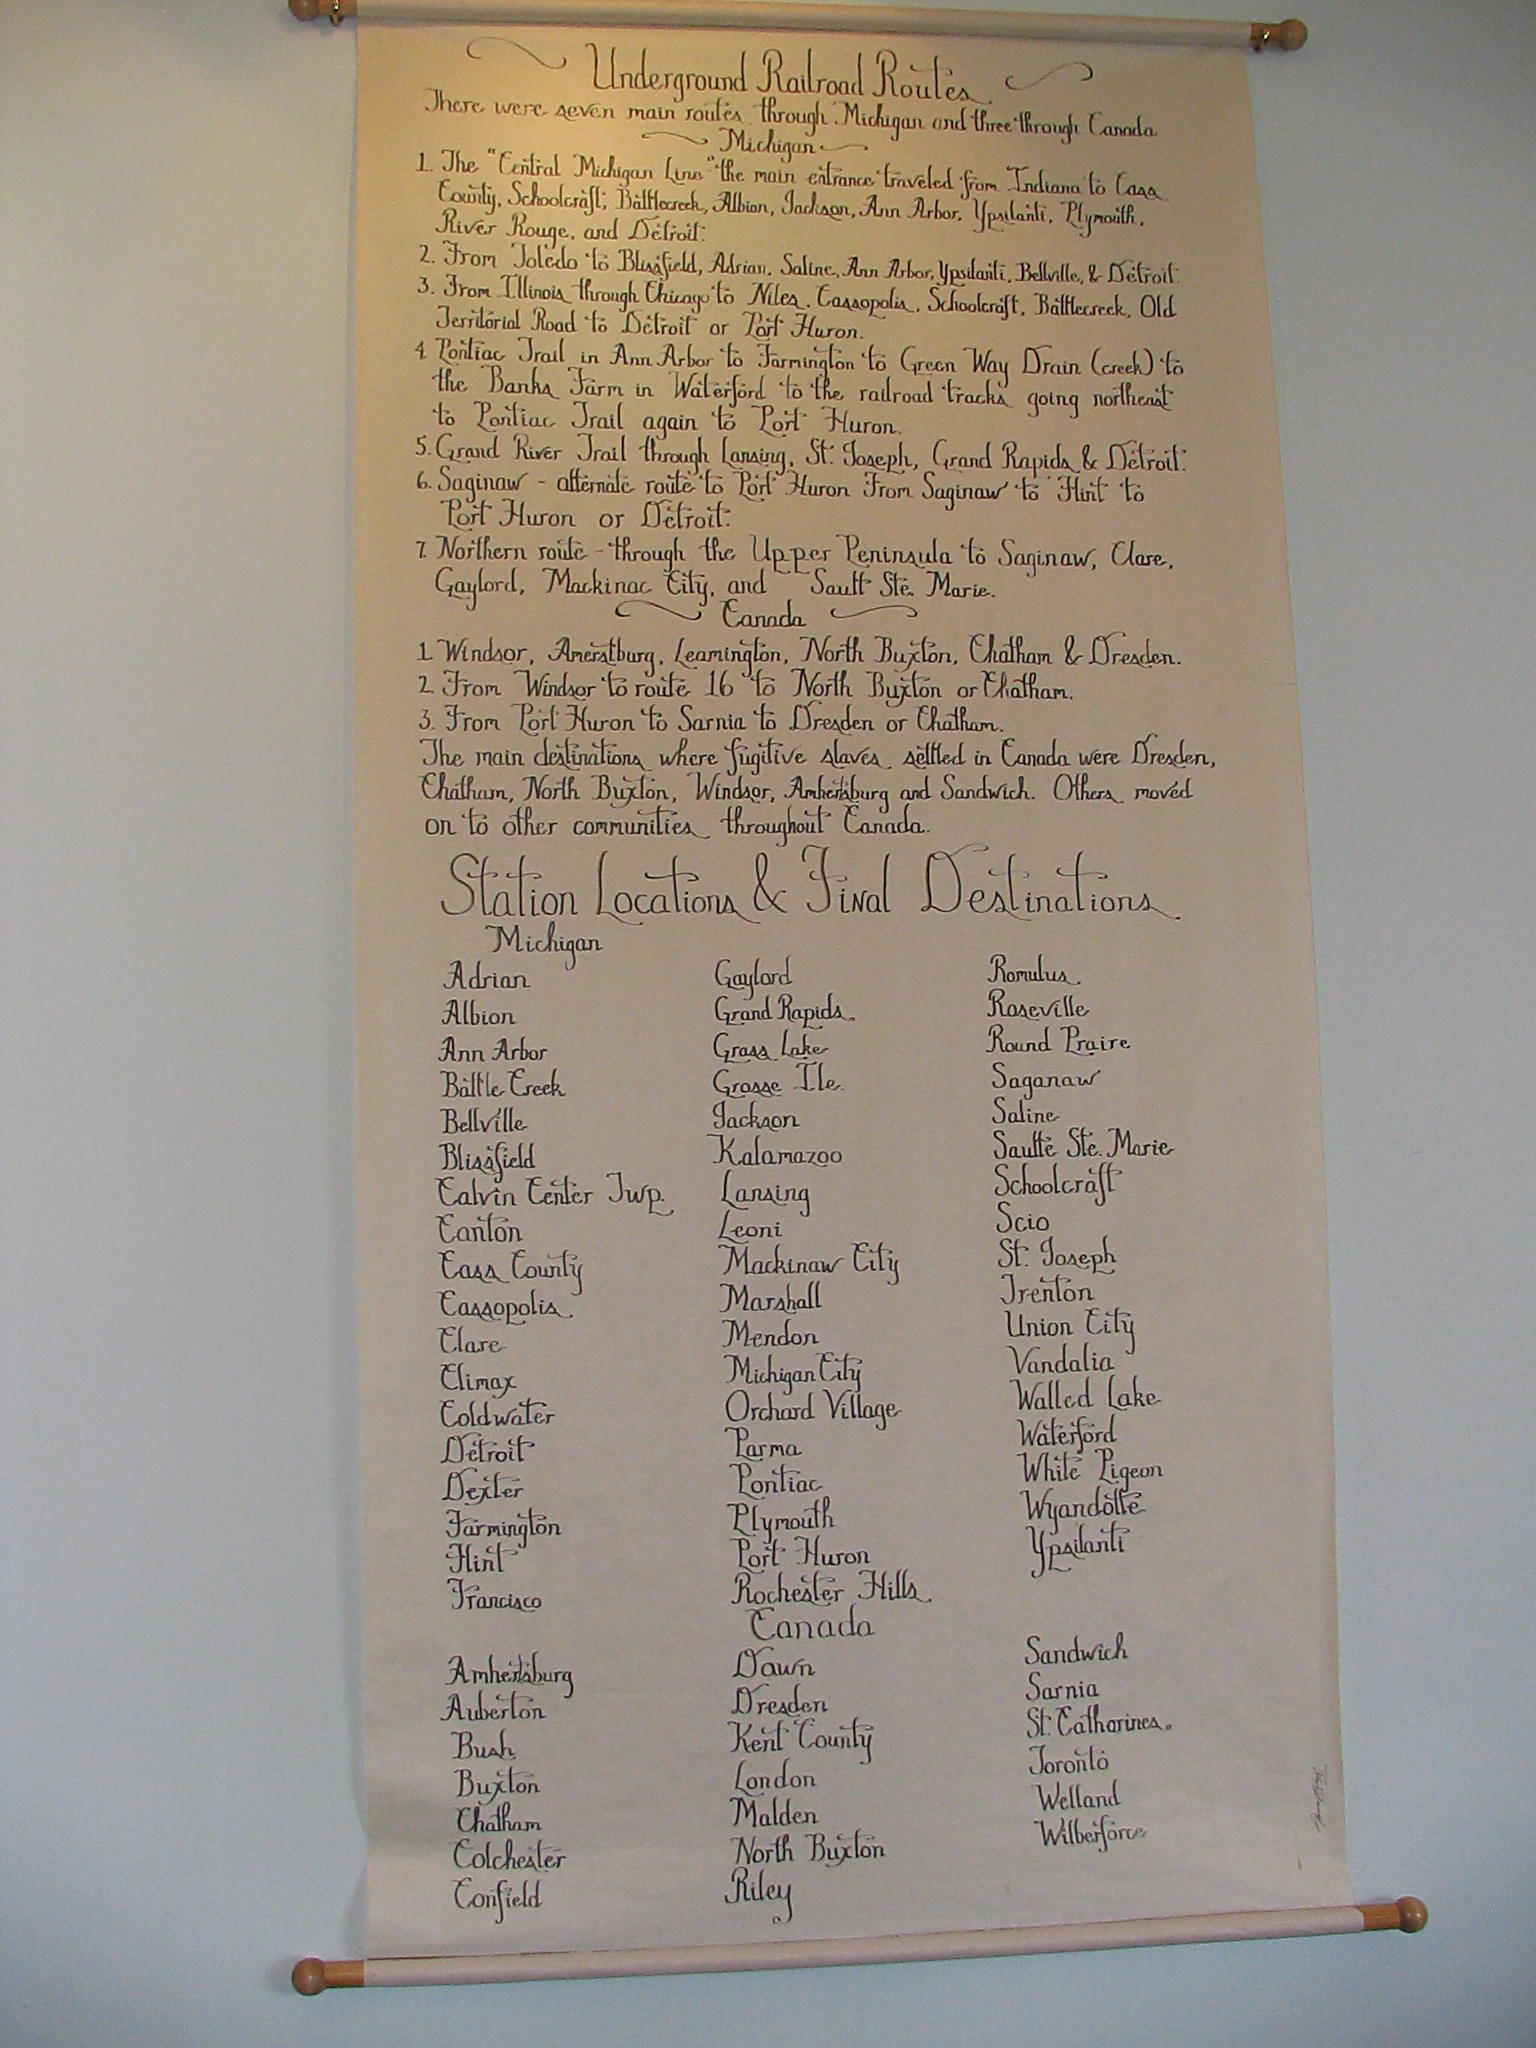 Underground Railroad Routes
There were seven main routes through Michigan and three through Canada
Michigan
1. The "Central Michigan Line" the main entrance traveled from Indiana to Cass
County, Schoolcraft, Battlecreek, Albion, Jackson, Ann Arbor, Ypsilanti, Plymouth,
River Rouge, and Detroit.
2. From Toledo to Blissfield, Adrian, Saline, Ann Arbor, Ypsilanti, Bellville, & Detroit.
3. From Illinois through Chicago to Niles, Cassopolis, Schoolcraft, Battlecreek, Old
Territorial Road to Detroit or Port Huron.
4. Pontiac Trail in Ann Arbor to Farmington to Green Way Drain (creek) to
the Banks Farm in Waterford to the railroad tracks going northeast
to Pontiac Trail again to Port Huron.
5. Grand River Trail through Lansing, St. Joseph, Grand Rapids & Detroit.
6. Saginaw - alternate route to Port Huron From Saginaw to Flint to
Port Huron or Detroit.
7. Northern route - through the Upper Peninsula to Saginaw, Clare,
Gaylord, Mackinac City, and Sault Ste. Marie.
Canada
1. Windsor, Amerstburg, Leamington, North Buxton, Chatham & Dresden.
2. From Windsor to route 16 to North Buxton or Chatham.
3. From Port Huron to Sarnia to Dresden or Chatham.
The main destinations where fugitive slaves settled in Canada were Dresden,
Chatham, North Buxton, Windsor, Amhertsburg and Sandwich. Others moved
on to other communities throughout Canada.
Station Locations & Final Destinations
Michigan
Adrian
Albion
Ann Arbor
Battle Creek
Bellville
Blissfield
Calvin Center Twp.
Canton
Cass County
Cassopolis
Clare
Climax
Coldwater
Detroit
Dexter
Farmington
Flint
Francisco
Gaylord
Grand Rapids
Grass Lake
Grosse Ile
Jackson
Kalamazoo
Lansing
Leoni
Mackinaw City
Marshall
Mendon
Michigan City
Orchard Village
Parma
Pontiac
Plymouth
Port Huron
Rochester Hills
Romulus
Roseville
Round Praire
Saganaw
Saline
Saulte Ste. Marie
Schoolcraft
Scio
St. Joseph
Trenton
Union City
Vandalia
Walled Lake
Waterford
White Pigeon
Wyandotte
Ypsilanti
Canada
Amhertsburg
Auberton
Bush
Buxton
Chatham
Colchester
Confield
Dawn
Dresden
Kent County
London
Malden
North Buxton
Riley
Sandwich
Sarnia
St. Catharines
Toronto
Welland
Wilberforce